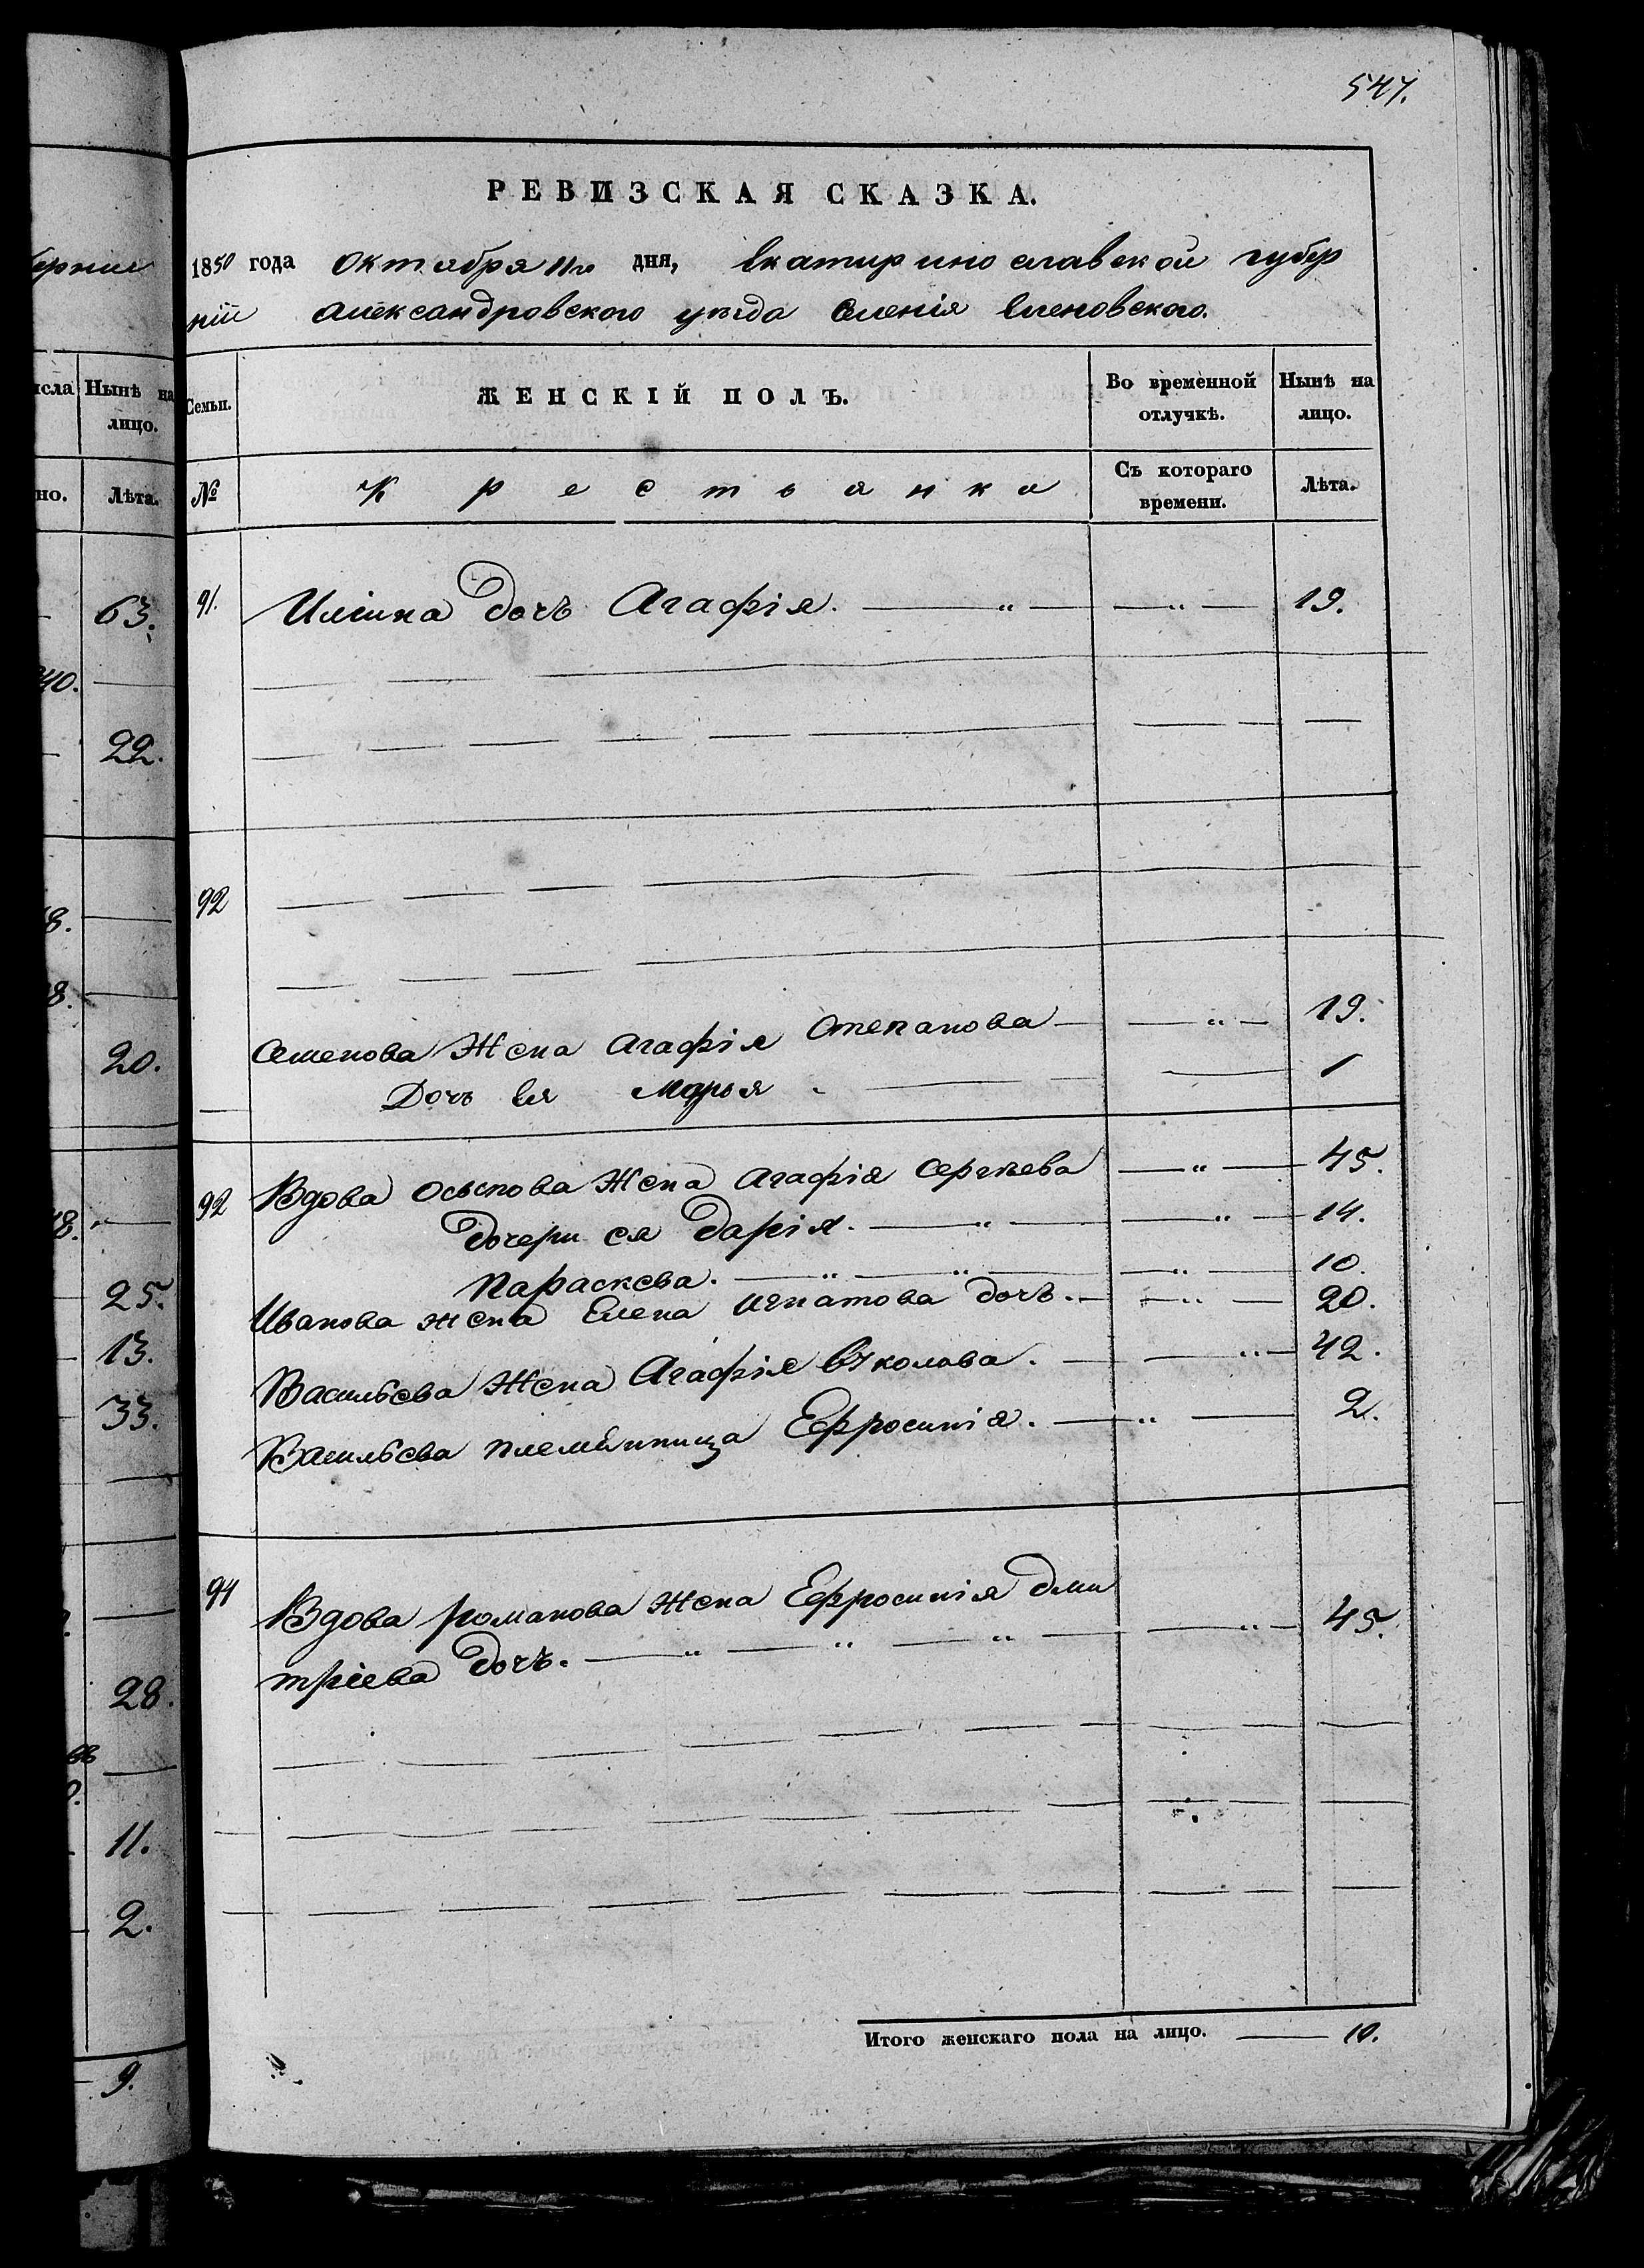 547.
РЕВИЗСКАЯ СКАЗКА.
1850 года октября 11го дня, Екатириnославской губер
нiи Александровского уезда Селенiя Еленовского.
Семьи. ЖЕНСКІЙ ПОЛЪ. Во временной отлучкѣ. Нынѣ на лицо.
№ Крестьянка Съ котораго времени. Лѣта.
91. дочь Агафiя. 19.
92
Семенова Жена Агафiя Степанова 19.
Дочь Ея Марья 1
92 Вдова Осыпова Жена Агафiя Сергѣева 45.
дочери ея Дарiя. 14.
Параскева. 10.
Иванова жена Елена Игнатова дочь. 20.
Васильева Жена Агафiя 42.
Васильева племѣнница Ефросинiя. 2.
94 Вдова Романова Жена Ефросинiя Дми
трiева дочь. 45.
Итого женскаго пола на лицо. 10.
ерние
исла Нынѣ на лицо.
но. Лѣта.
63.
40.
22.
8.
8.
20.
8.
25.
13.
33.
28.
11.
2.
9.